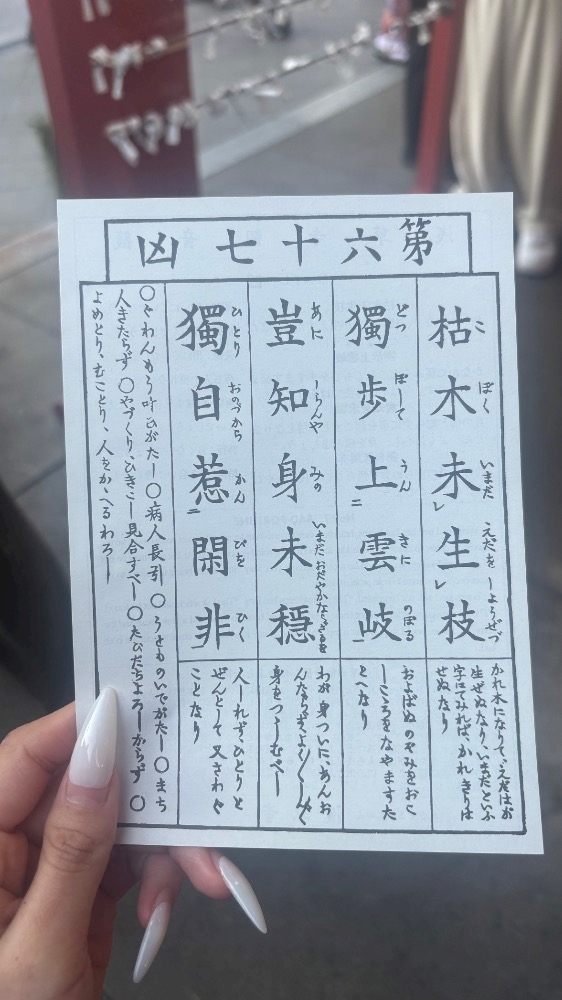 第六十七凶
枯木未生枝
こ ぼく いまだ えだを しようぜづ
かれ木になりて、えだはお
生ぜぬなり、いまだといふ
字にてみれば、かれきりは
せぬなり
獨歩上雲岐
どつ ぽして うん きに のぼる
およばぬのぞみをおこ
しこころをなやますた
とへなり
豈知身未穩
あに しらんや みの いまだ おだやかならざるを
わが身ついに、あんお
んならずよく〱
身をつゝしむべし
獨自惹閑非
ひとり おのづから かん ぴを ひく
人しれず、ひとりと
ぜんとして又さわぐ
ことなり
〇ぐわんもう叶ひがたし〇病人長引〇うせものいでがたし〇まち
人きたらず〇やづくり、ひきこし見合すべし〇たびだちよろしからず〇
よめとり、むことり、人をかゝへるわろし